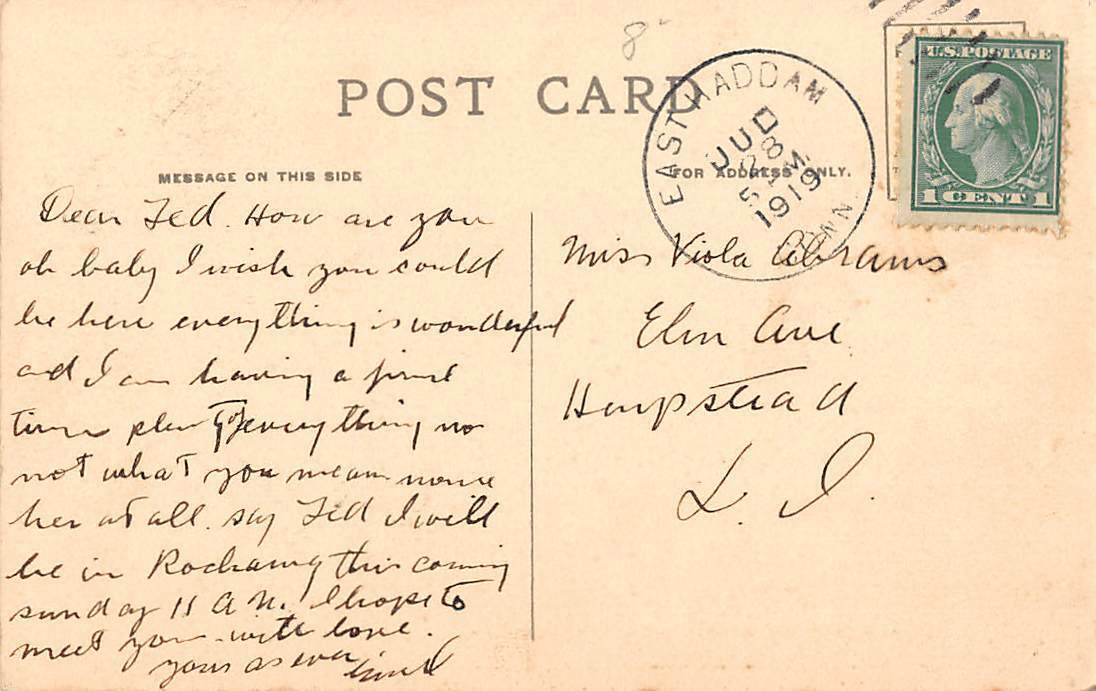 8
POST CARD
MESSAGE ON THIS SIDE
FOR ADDRESS ONLY.
EAST HADDAM
28
5 PM
1919
CONN.
U.S. POSTAGE
1 CENT 1
Dear Ted. How are you
oh baby I wish you could
be here everything is wonderful
and I am having a fine
time plenty of everything no
not what you mean none
her at all. say Ted I will
be in Rockaway this coming
sunday 11 A M. I hope to
meet you with love.
yours as ever
Miss Viola Abrams
Elm Ave
Hempstead
L. I.